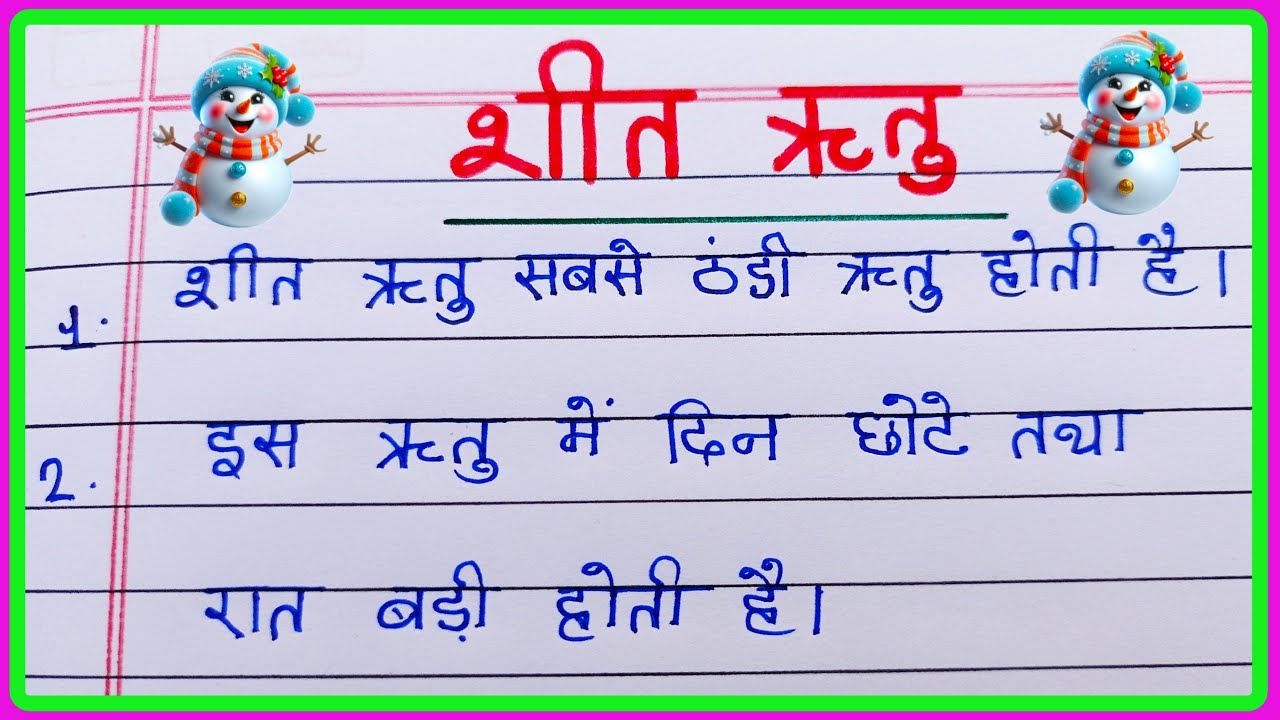 शीत ऋतु
1. शीत ऋतु सबसे ठंडी ऋतु होती है।
2. इस ऋतु में दिन छोटे तथा
रात बड़ी होती है।